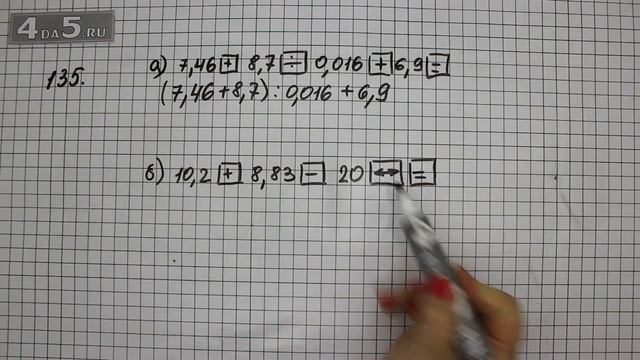 4DA5.RU
135.
а) 7,46 + 8,7 ÷ 0,016 + 6,9 =
(7,46+8,7) : 0,016 + 6,9
б) 10,2 + 8,83 − 20 ↔ =